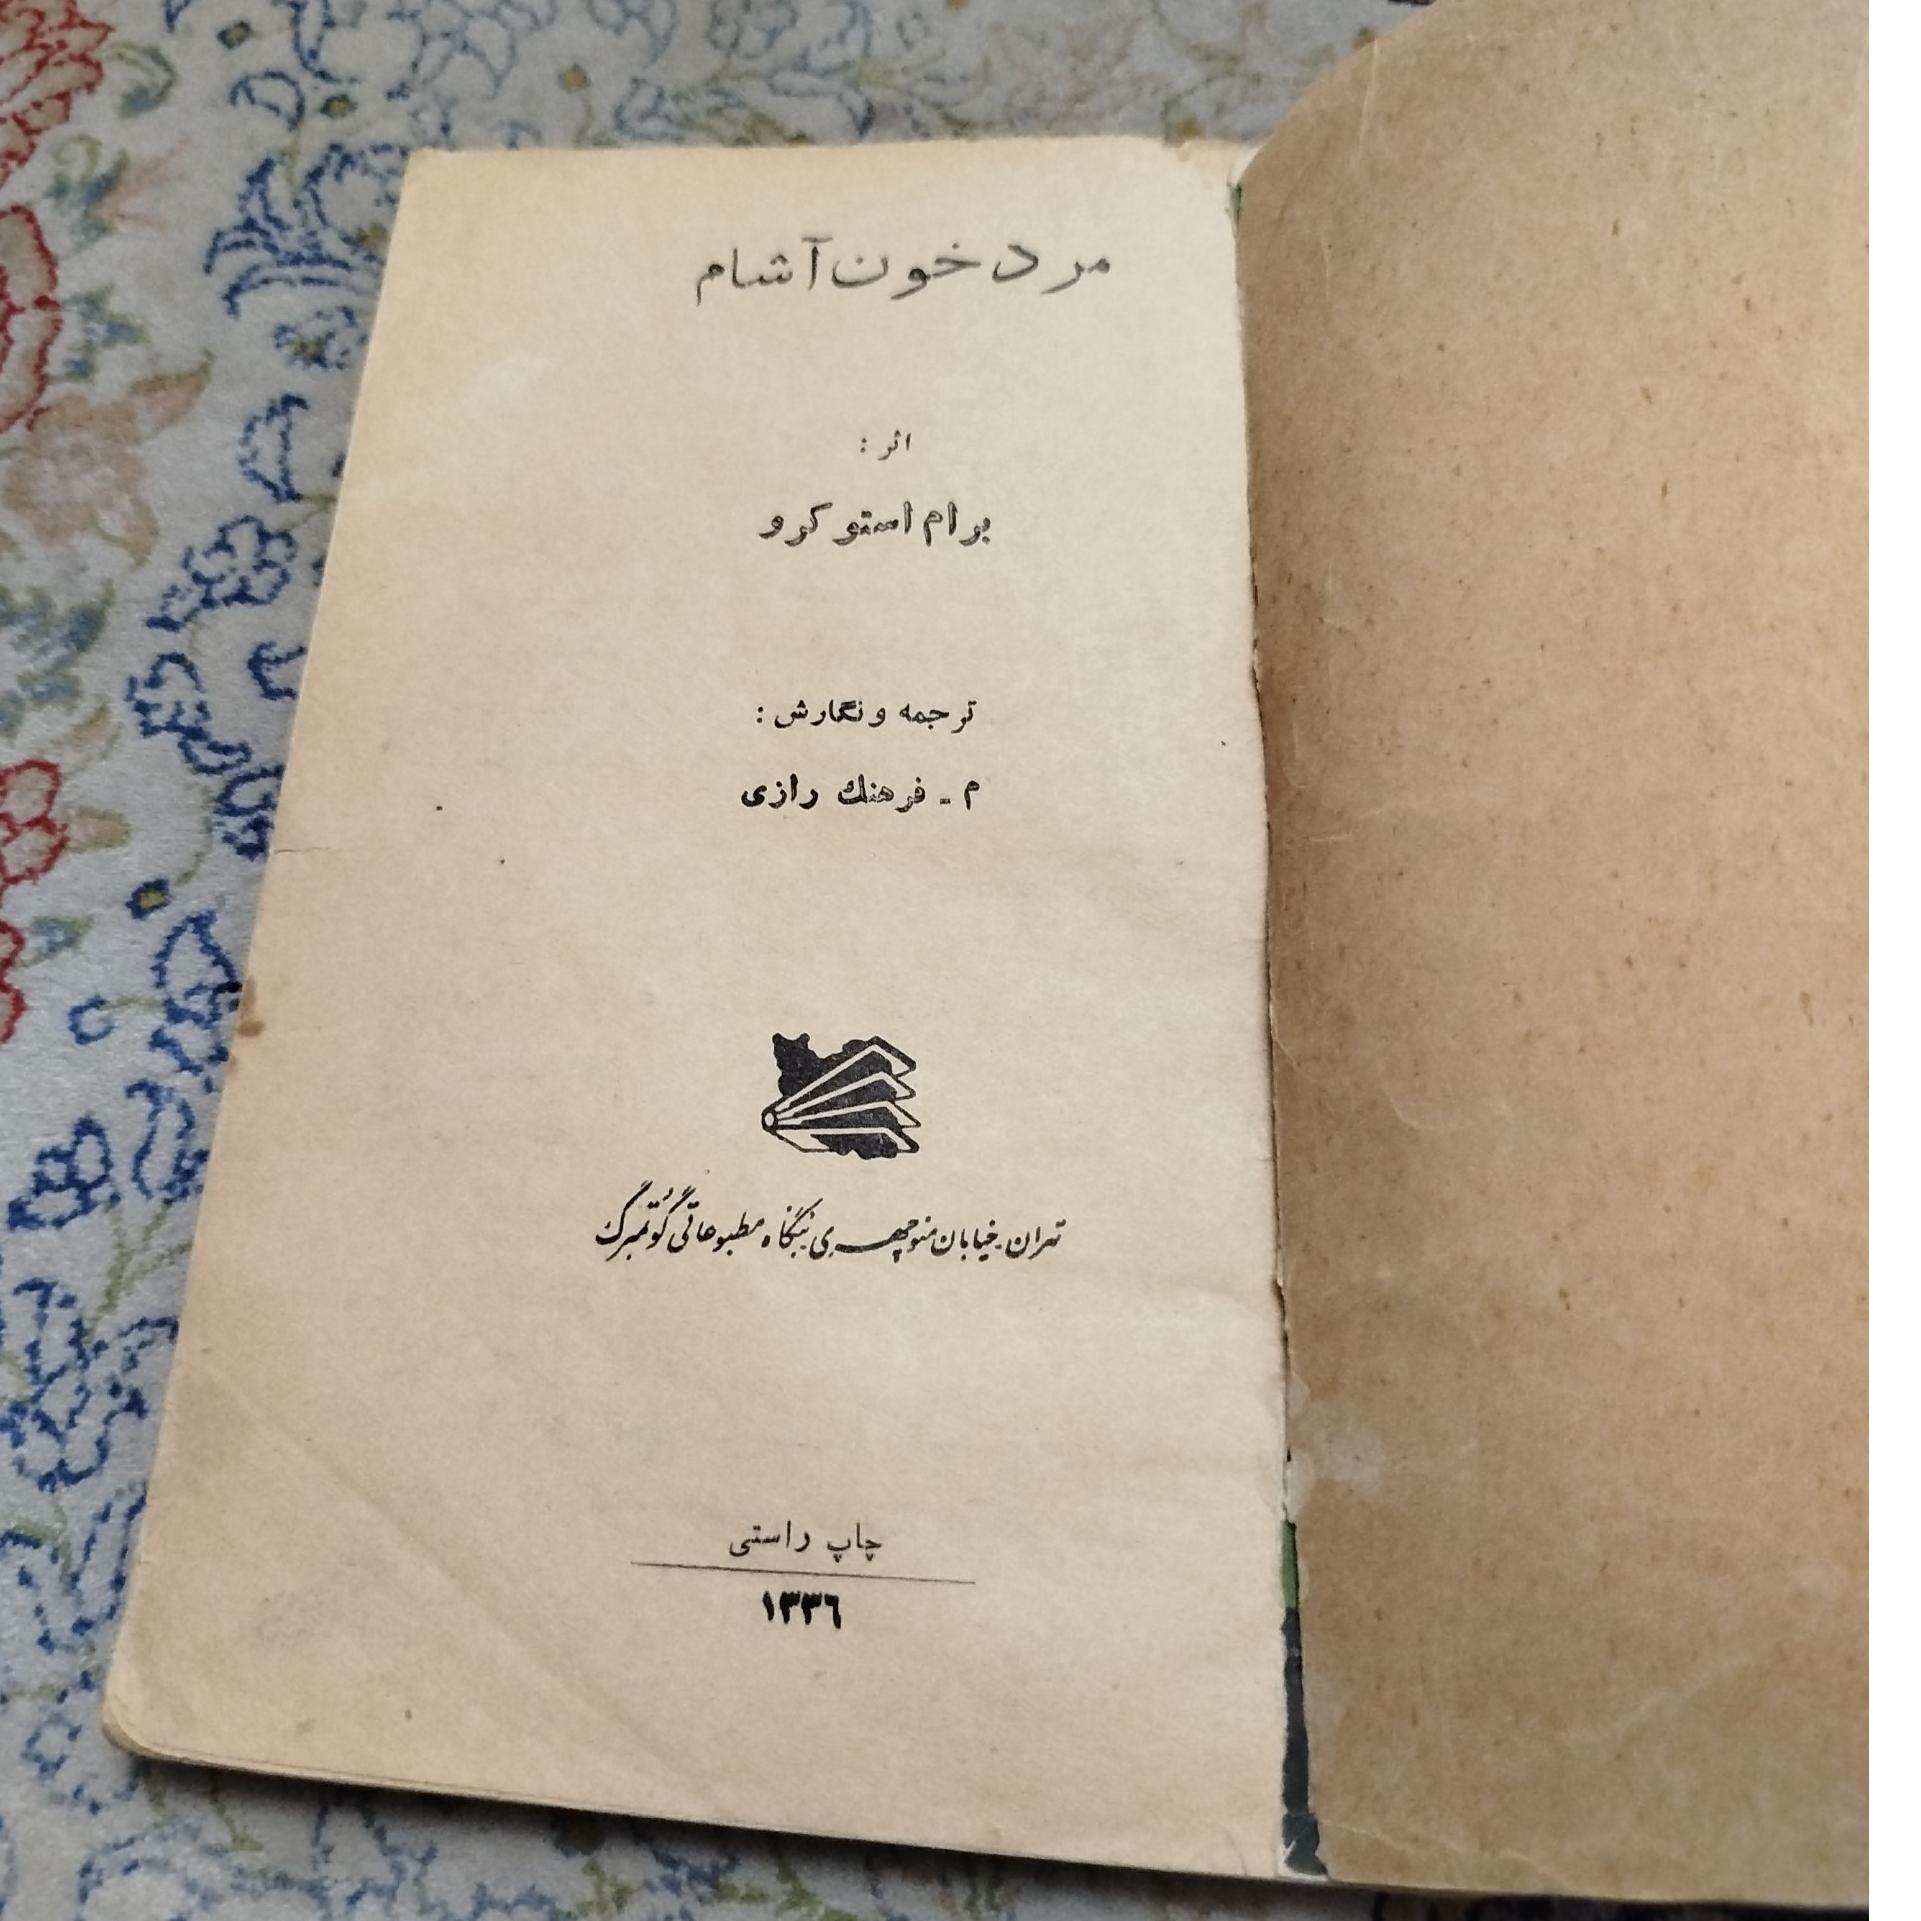 مرد خون آشام
اثر :
برام استو کرو
ترجمه و نگارش :
م - فرهنك رازی
تهران - خیابان منوچهری بنگاه مطبوعاتی گوتمبرگ
چاپ راستی
۱۳۳۶